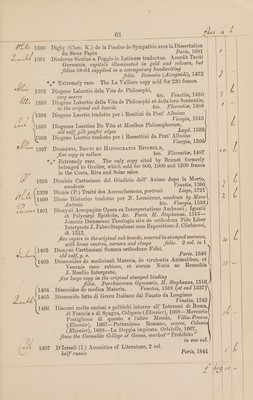 65
1390 Digby (Chev. K.) de la Poudre de Sympathie avec la Dissertation
du Sieur Papin Paris, 1681
1391 Diodorus Siculus a Poggio in Latinum traductus. Accedit Taciti
Germania, capitals illuminated in gold and colours, but
folios 58-61 supplied in a extraordinary handwriting
folio. Bononie (Azoguidi), 1472
*** Extremely rare. The La Valliere copy sold for 220 francs.
1392 Diogene Labertio dela Vita de Philosophi,
very scarce 4to. Venetiis, 1480
1393 Diogene Labertio dela Vita de Philosophi et della loro Sententie,
in the original oak boards 4to. Florentie, 1488
1394 Diogene Laertio tradotto per i Rossitini da Prat' Alboino
Vinegia, 1545
1395 Diogenes Laertius De Vita et Moribus Philosophorum,
old calf, gilt gaufré edges Lugd. 1556
1396 Diogene Laertio tradotto per i Rossettini da Prat' Alboino
Vinegia, 1566
1397 DIOMEDIS, BRUTI ET HIPPOCRATIS EPISTOLÆ,
fine copy in vellum 4to. Florentiæ, 1487
*** Extremely rare. The only copy cited by Brunet formerly
belonged to Grolier, which sold for 800, 1000 and 1200 francs
in the Costa, Riva and Solar sales
1398 Dionisio Cartusiano del Giudicio dell' Anime dopo la Morte,
woodcuts Venetia, 1590
1399 Dionis (P.) Traité des Accouchemens, portrait Liege, 1721
1400 Dione Historico tradotto per N. Leoniceno, woodcuts by Moro
4to. Vinegia, 1533
1401 Dionysii Areopagitæ Opera ex Interpretatione Ambrosii; Ignatii
et Polycarpi Epistolæ, &c. Paris. H. Stephanus, 1515—
Joannis Damasceni Theologia sive de orthodoxa Fide Liber
Interprete J. Fabro Stapulensi cum Expositione J. Clichtovei,
ib. 1512,
fine copies in the original oak boards, covered in stamped morocco,
with brass centres, corners and clasps folio. 2 vol. in 1
1402 Dionysii Carthusiani Summa orthodoxæ Fidei,
old calf, g. e. Paris. 1548
1403 Dioscorides de medicinali Materia, de virulentis Animalibus, et
Venenis cane rabioso, et eorum Notis ac Remediis
Ruellio Interprete,
fine large copy in the original stamped binding
folio. Parrhisiorum Gymnasio, H. Stephanus, 1516
1404 Dioscorides de medica Materia. Venetiis, 1538 (at end 1527)
1405 Dioscoride fatto di Greco Italiano dal Fausto da Longiano
Venetia, 1542
1406 Discorsi molto curiosi e politichi intorno all' Interessi di Roma,
di Francia e di Spagna, Colognia (Elzevier), 1668—Mercurio
Postiglione di questo e l'altro Mondo, Villa-Franca
(Elzevier), 1667—Puttanismo Romano, scarce, Colonia
(Elzevier), 1668—La Doppia impiccata. Orbitello, 1667,
from the Cornelite College at Genoa, marked "Prohibito"
in one vol.
1407 D'Israeli (I.) Amenities of Literature, 2 vol.
half russia Paris, 1841